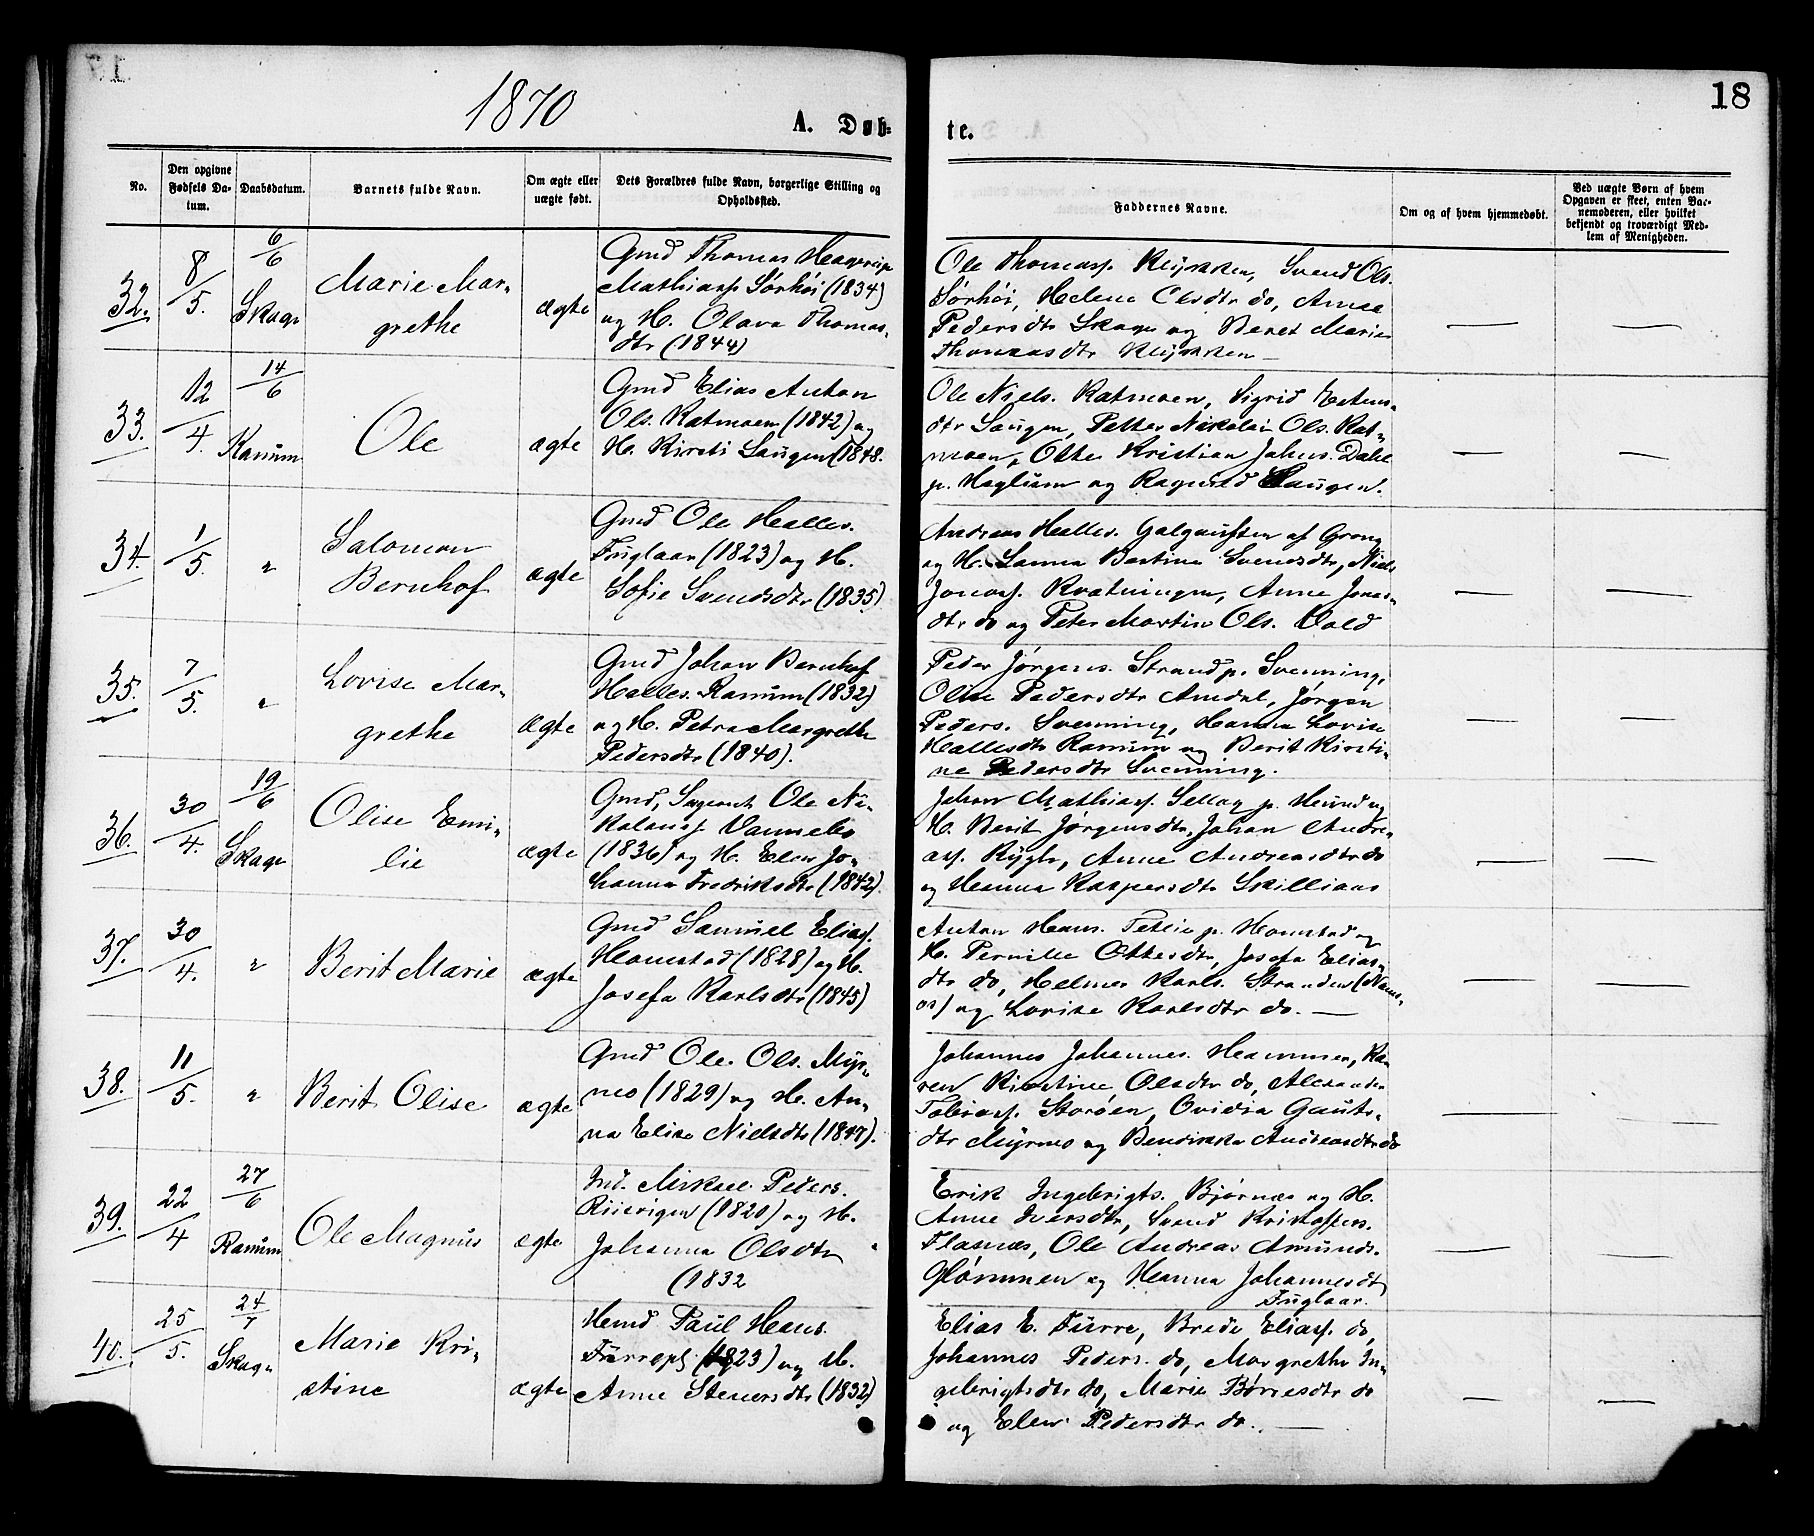 1870
A. Døb-
te.
18
No.
Den opgivne Fødsels Datum.
Daabsdatum.
Barnets fulde Navn.
Om ægte eller uægte født.
Dets Forældres fulde Navn, borgerlige Stilling og Opholdssted.
Faddernes Navne.
Om og af hvem hjemmedøbt.
Ved uægte Børn af hvem Opgaven er skeet, enten Barnemoderen, eller hvilket bekjendt og troværdigt Medlem af Menigheden.
32.
8/5.
6/6
Skage
Marie Mar-
grethe
ægte
Gmd Thomas
Mathiass. Sørhøi (1834)
og H. Olava Thomas-
dtr (1844)
Ole Thomass. Klykken, Svend Ols.
Sørhøi, Helena Olsdtr do, Anne
Pedersdtr Skage og Beret Marie
Thomasdtr Klykken —
33.
12/4.
14/6
Ranum
Ole
ægte
Gmd Elias Anton
Ols. Ratmoen (1842) og
H. Kirsti Saugen (1848.
Ole Niels. Ratmoen, Sigrid
dtr Saugen, Petter Nikolai Ols. Rat-
moen, Otte Kristian Johns. Dahl
p. Haglium og Ragnild Saugen.
34.
1/5.
"
Salomon
Bernhof
ægte
Gmd Ole Halles.
Fuglaar (1823) og H.
Sofie Svendsdtr (1835)
Andreas Halles. Galguften af Grong
og H. Sanna Bertine Svendsdtr, Niels
Jonass. Kvatningen, Anne Jonas-
dtr do og Peter Martin Ols. Vold
35.
7/5.
"
Lovise Mar-
grethe
ægte
Gmd Johan Bernhof
Halles. Ranum (1832)
og H. Petra Margrethe
Pedersdtr (1840).
Peder Jørgens. Strand p. Svenning,
Oline Pedersdtr Amdal, Jørgen
Peders. Svenning, Hanna Lovise
Hallesdtr Ranum og Berit Kirsti-
ne Pedersdtr Svenning.
36.
30/4.
19/6
Skage
Olise Emi-
lie
ægte
Gmd, Ole Ni-
kolaus. Vannebo
(1836) og H. Elen Jo-
hanna Fredriksdtr (1842).
Johan Mathiass. Sellæg p. Hund og
H. Berit Jørgensdtr, Johan Andre-
ass. Rygh, Anne Andreasdtr do
og Hanna Kaspersdtr Skilliaas
37.
30/4.
"
Berit Marie
ægte
Gmd Samuel Eliass.
Homstad (1828) og H.
Josefa Karlsdtr (1845)
Anton Hans. Tetlie p. Homstad og
H. Pernille Ottesdtr, Josefa Elias-
dtr do, Helmer Karls. Stranden (Nams-
os) og Lovise Karlsdtr do. —
38.
11/5.
"
Berit Olise
ægte
Gmd Ole Ols. Myr-
nes (1829) og H. An-
na Elise Nielsdtr (1847).
Johannes Johannes. Hammer, Ka-
ren Kirstine Olsdtr do, Alexander
Tobiass. Storøen, Ovidia Gauts-
dtr Myrnes og Bendikke Andreasdtr do
39.
22/4
27/6
Ranum
Ole Magnus
ægte
Ind. Mikael Peders.
(1820) og H.
Johanna Olsdtr
(1832
Erik Ingebrigts. Bjørnes og H.
Anne Iversdtr, Svend Kristoffers.
Flasnes, Ole Andreas Amunds.
Glømmen og Hanna Johannesdt
Fuglaar.
40.
25/5.
24/7
Skage
Marie Kri-
stine
ægte
Hmd Paul Hans.
Furrepl (1823) og H.
Anne Stenersdtr (1832)
Elias E. Furre, Brede Eliass. do,
Johannes Peders. do, Margrethe In-
gebrigtsdtr do, Marie Børresdtr do
og Elen Pedersdtr do. —